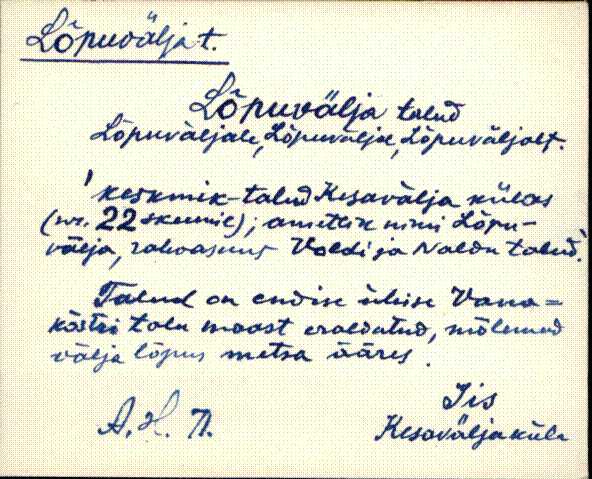 Lõpuvälja t.
Lõpuvälja talud
Lõpuväljale, Lõpuväljal, Lõpuväljalt.
keskmik-talud Kesavälja külas
(nr. 22 skeemil); ametlik nimi Lõpu-
välja, rahvasuus Valdi ja Naldu talud.
Talud on endise ühise Vana=
kõstri talu maast eraldatud, mõlemad
välja lõpus metsa ääres.
Iis
A. H. 71. Kesavälja küla